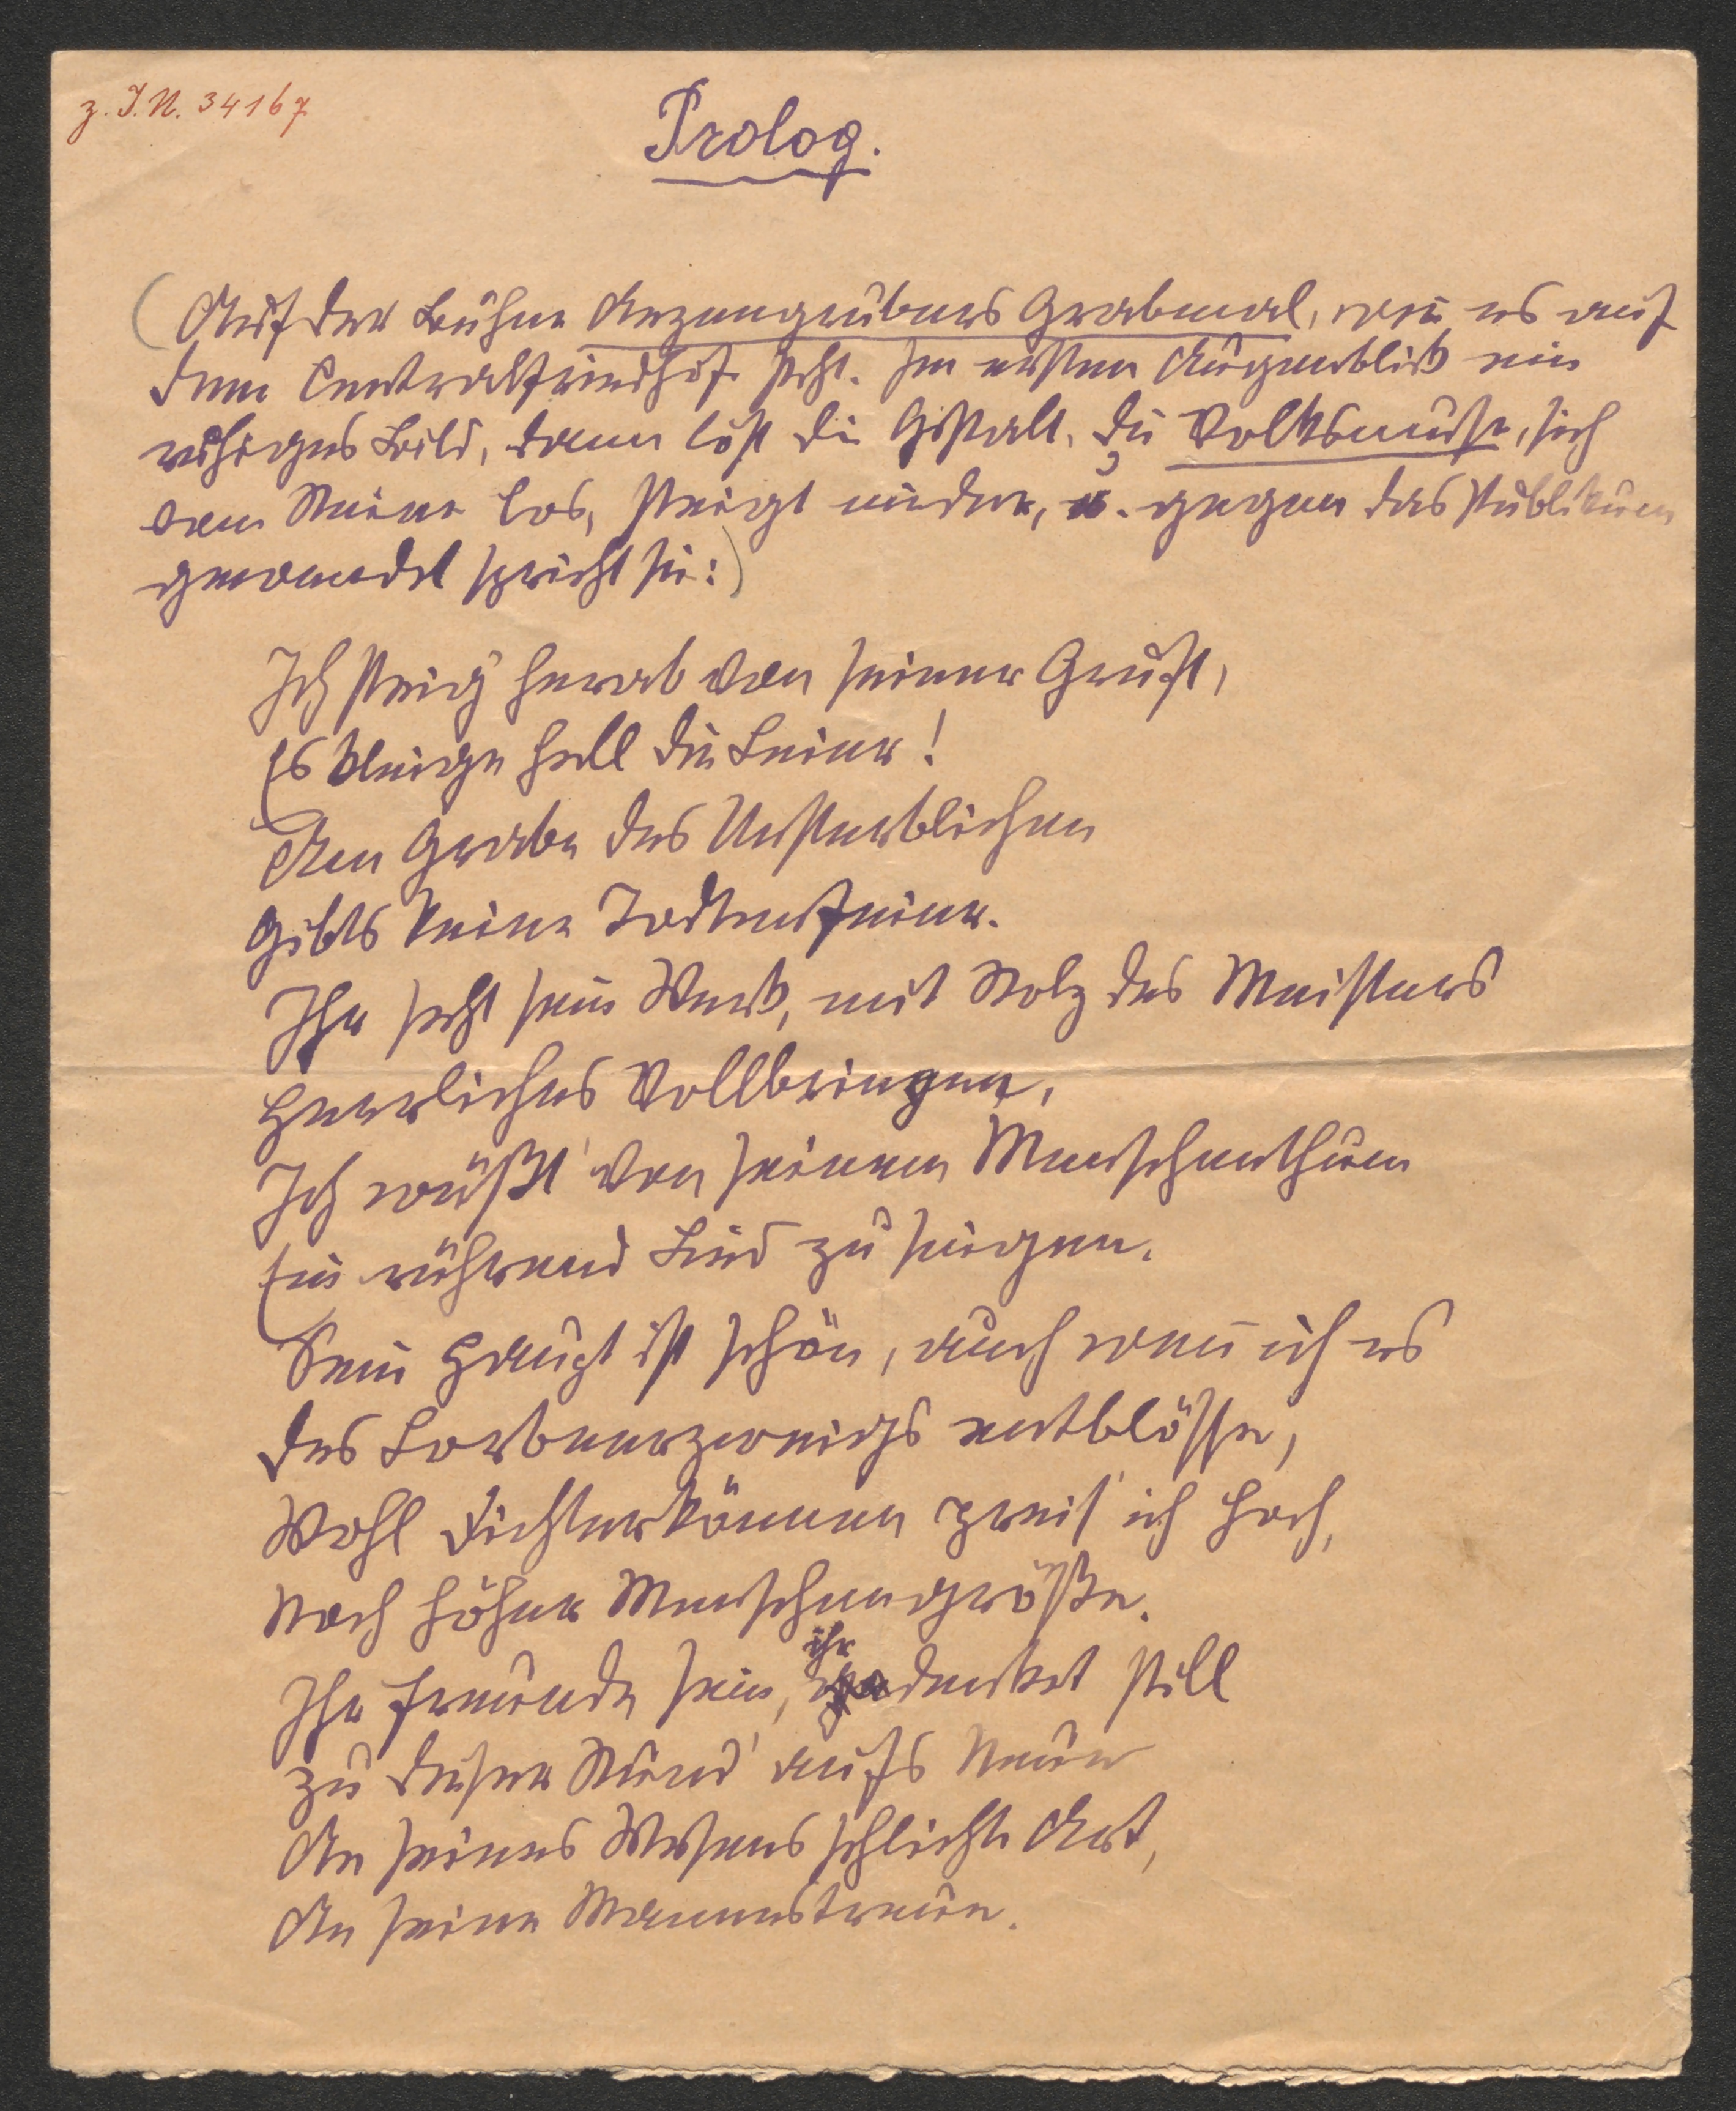 z. I. N. 34167
Prolog.
(Auf der Bühne Anzengrubers Grabmal, wie es auf
dem Centralfriedhof steht. Im ersten Augenblick ein
ruhiges Bild, dann löst die Gestalt, die Volksmuse, sich
vom Steine los, steigt nieder, u. gegen das Publikum
gewandet spricht sie:)
Ich steig' herab von seiner Gruft,
Es klinge hell die Leier!
Am Grabe des Unsterblichen
Gibts keine Todtenfeier.
Ihr seht sein Werk, mit Stolz des Meisters
Herrliches Vollbringen,
Ich wüßt' von seinem Menschenthum
Ein rührend Lied zu singen.
Sein Haupt ist schön, auch wenn ich es
Des Lorbeerzweigs entblösse,
Wohl Dichterkönnen preis' ich hoch,
Noch höher Menschengröße.
Ihr Freunde sein, ihr denket still
Zu dieser Stund' aufs Neue
An seines Wesens schlichte Art,
An seine Mannestreue.